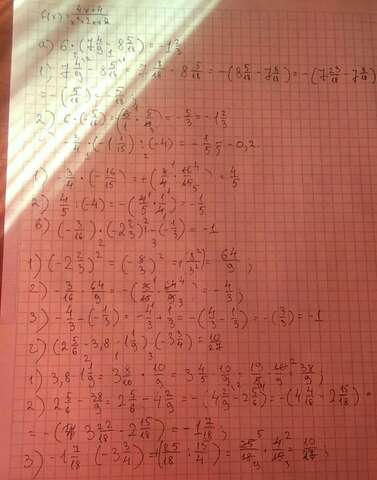 f(x) = \frac{4x+4}{x²+2x+2}
a) 6·(7\frac{4}{9} - 8\frac{5}{18}) = -1\frac{2}{3}
1) 7\frac{4}{9} - 8\frac{5}{18} = 7\frac{8}{18} - 8\frac{5}{18} = -(8\frac{5}{18} - 7\frac{8}{18}) = -(7\frac{23}{18} - 7\frac{8}{18})
= -(\frac{5}{18}) = -\frac{5}{18};
2) 6·(-\frac{5}{18}) = -(\frac{6}{1}·\frac{5}{18}) = -\frac{5}{3} = -1\frac{2}{3}
-\frac{3}{4}·(-1\frac{1}{15}):(-4) = -\frac{1}{5} = -0,2
1) -\frac{3}{4}·(-\frac{16}{15}) = +(\frac{3}{4}·\frac{16}{15}) = \frac{4}{5}
2) \frac{4}{5}:(-4) = -(\frac{4}{5}·\frac{1}{4}) = -\frac{1}{5}
в) (-\frac{3}{16})·(-2\frac{2}{3})² - (-\frac{1}{3}) = -1
1) (-2\frac{2}{3})² = (-\frac{8}{3})² = +(\frac{8²}{3²}) = \frac{64}{9};
2) -\frac{3}{16}·\frac{64}{9} = -(\frac{3}{16}·\frac{64}{9}) = -\frac{4}{3};
3) -\frac{4}{3} - (-\frac{1}{3}) = -\frac{4}{3} + \frac{1}{3} = -(\frac{4}{3} - \frac{1}{3}) = -(\frac{3}{3}) = -1
г) (2\frac{5}{6} - 3,8·1\frac{1}{9}):(-3\frac{3}{4}) = \frac{10}{27}
1) 3,8·1\frac{1}{9} = 3\frac{8}{10}·\frac{10}{9} = 3\frac{4}{5}·\frac{10}{9} = \frac{19}{5}·\frac{10}{9} = \frac{38}{9};
2) 2\frac{5}{6} - \frac{38}{9} = 2\frac{5}{6} - 4\frac{2}{9} = -(4\frac{2}{9} - 2\frac{5}{6}) = -(4\frac{4}{18} - 2\frac{15}{18}) =
= -(3\frac{22}{18} - 2\frac{15}{18}) = -1\frac{7}{18};
3) -1\frac{7}{18}:(-3\frac{3}{4}) = +(\frac{25}{18}:\frac{15}{4}) = \frac{25}{18}·\frac{4}{15} = \frac{10}{27};